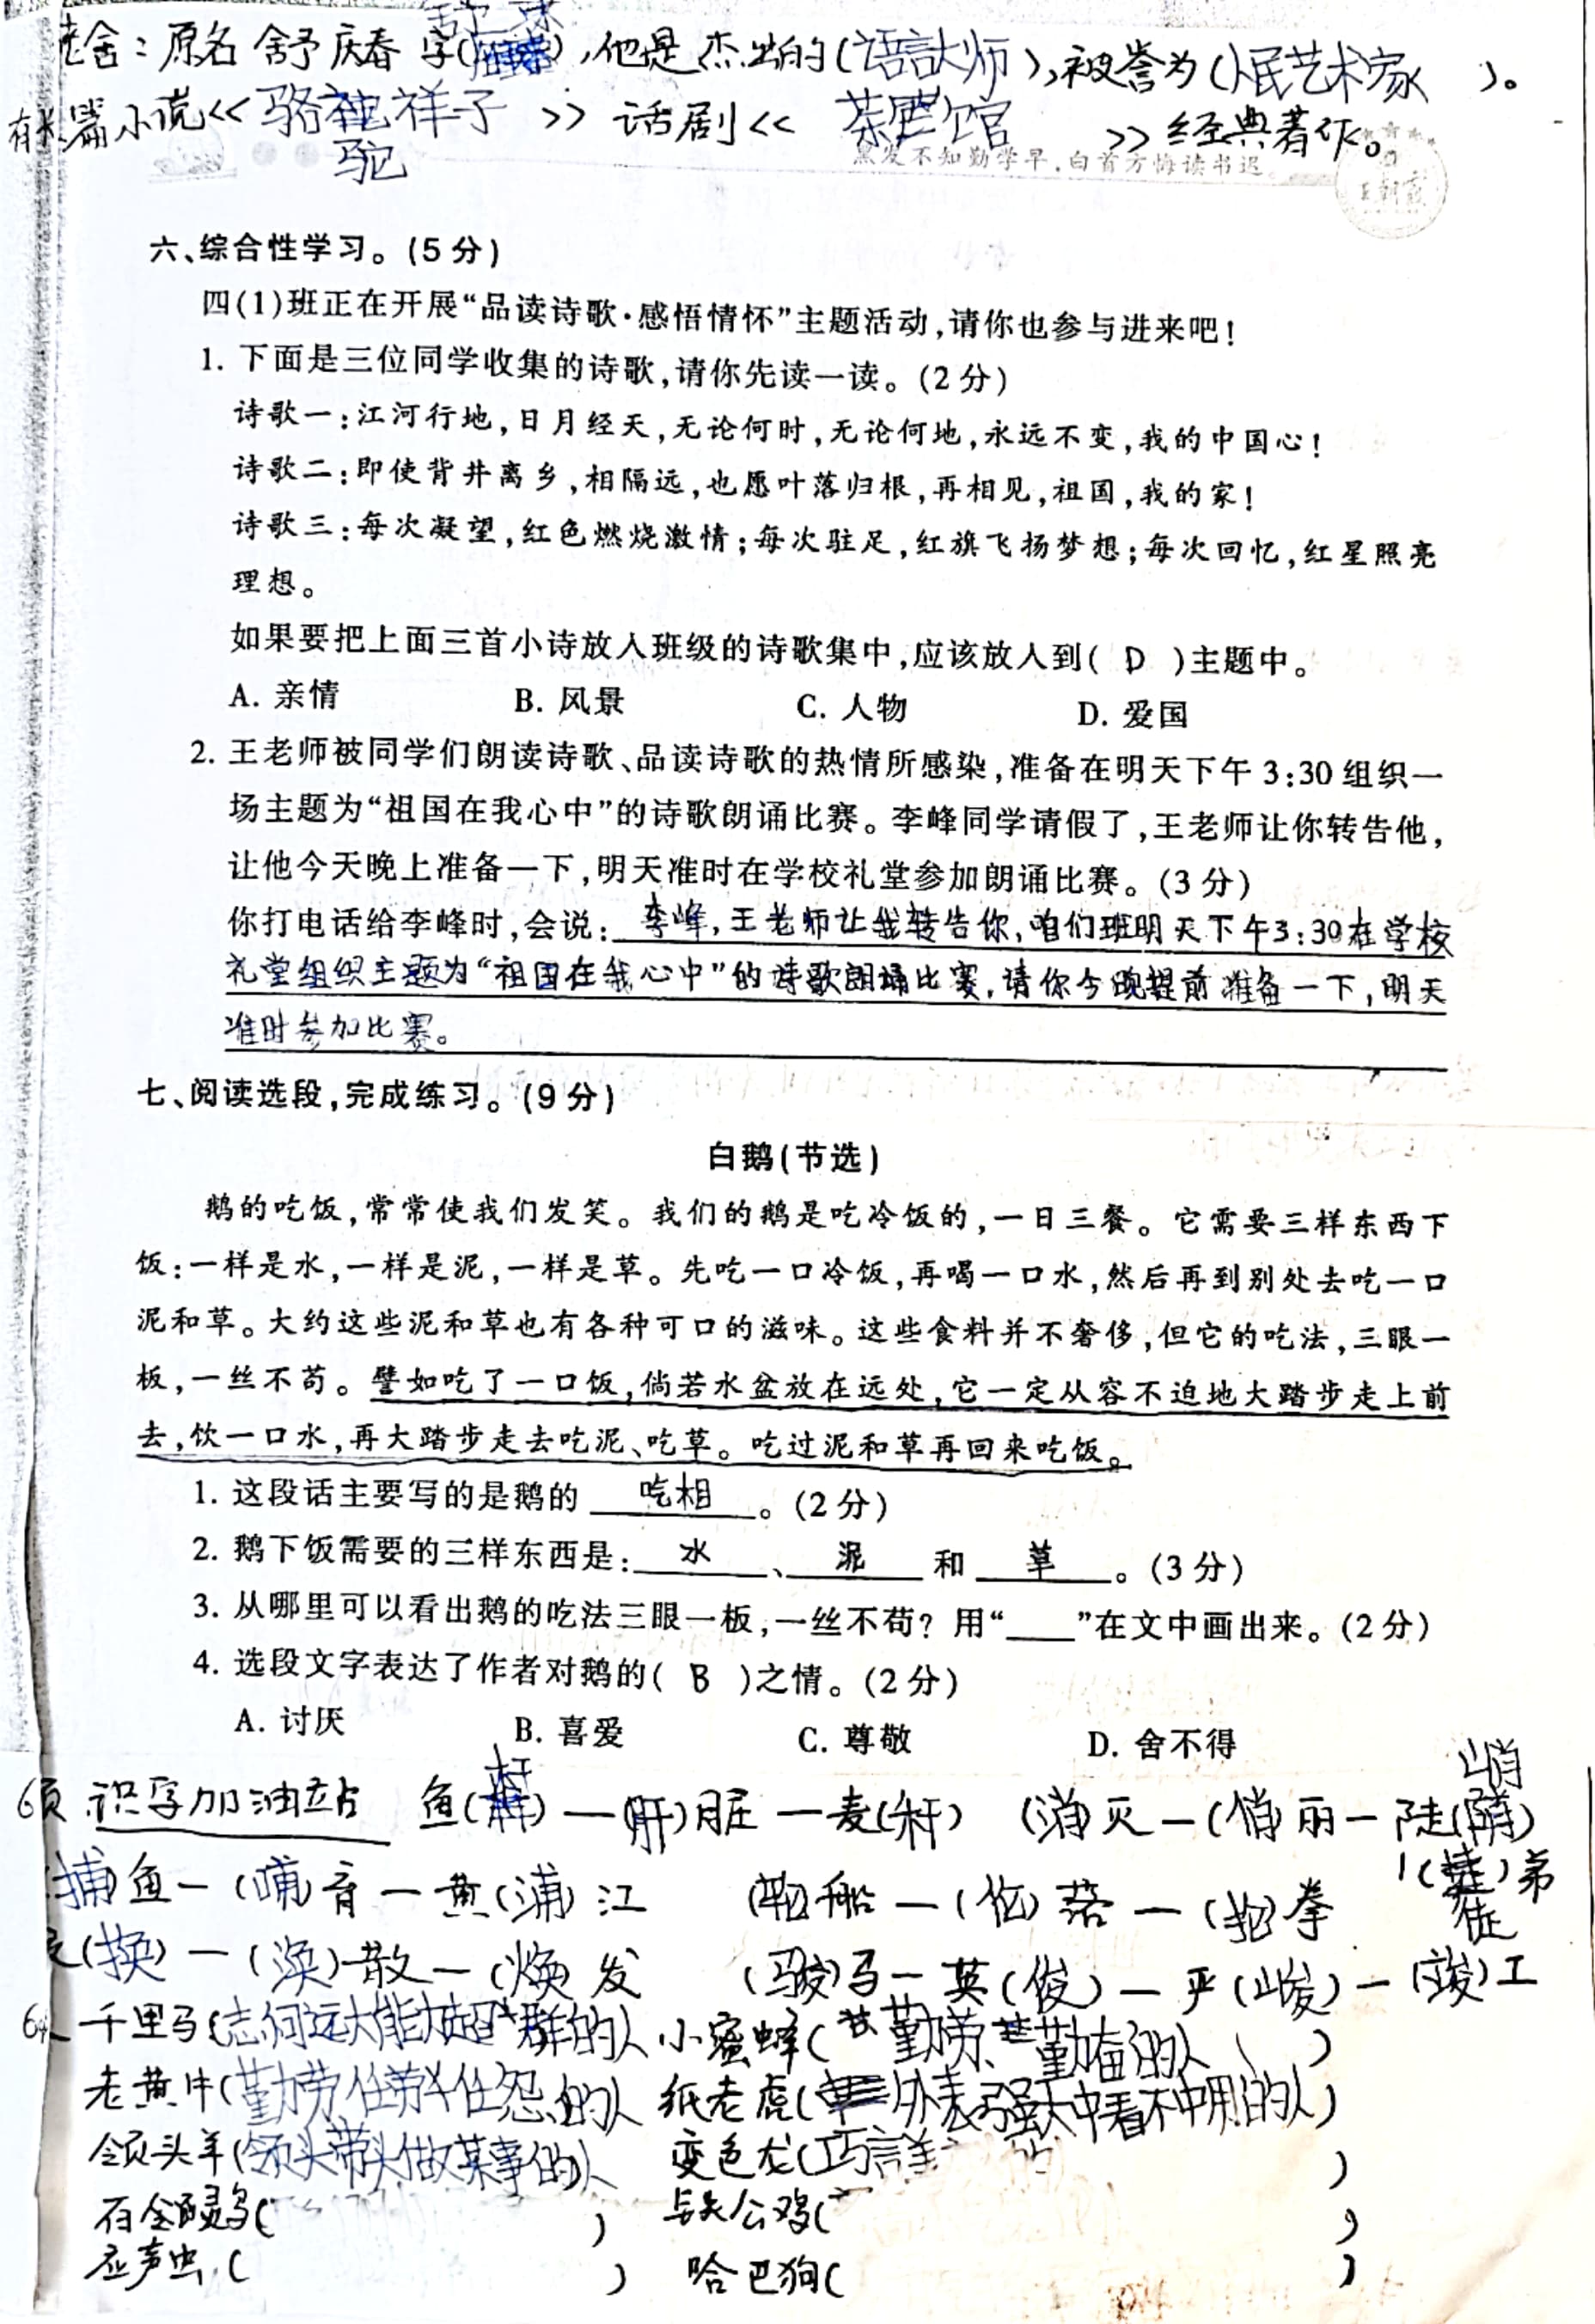 老舍：原名 舒庆春 字(舍予),他是杰出的(语言大师),被誉为(人民艺术家)。
有长篇小说<<骆驼祥子>> 话剧<<茶馆>>经典著作。
黑发不知勤学早,白首方悔读书迟。
六、综合性学习。(5分)
四(1)班正在开展“品读诗歌·感悟情怀”主题活动,请你也参与进来吧!
1. 下面是三位同学收集的诗歌,请你先读一读。(2分)
诗歌一:江河行地,日月经天,无论何时,无论何地,永远不变,我的中国心!
诗歌二:即使背井离乡,相隔远,也愿叶落归根,再相见,祖国,我的家!
诗歌三:每次凝望,红色燃烧激情;每次驻足,红旗飞扬梦想;每次回忆,红星照亮
理想。
如果要把上面三首小诗放入班级的诗歌集中,应该放入到( D )主题中。
A. 亲情 B. 风景 C. 人物 D. 爱国
2. 王老师被同学们朗读诗歌、品读诗歌的热情所感染,准备在明天下午3:30组织一
场主题为“祖国在我心中”的诗歌朗诵比赛。李峰同学请假了,王老师让你转告他,
让他今天晚上准备一下,明天准时在学校礼堂参加朗诵比赛。(3分)
你打电话给李峰时,会说:李峰,王老师让我转告你,咱们班明天下午3:30在学校
礼堂组织主题为“祖国在我心中”的诗歌朗诵比赛,请你今晚提前准备一下,明天
准时参加比赛。
七、阅读选段,完成练习。(9分)
白鹅(节选)
鹅的吃饭,常常使我们发笑。我们的鹅是吃冷饭的,一日三餐。它需要三样东西下
饭:一样是水,一样是泥,一样是草。先吃一口冷饭,再喝一口水,然后再到别处去吃一口
泥和草。大约这些泥和草也有各种可口的滋味。这些食料并不奢侈,但它的吃法,三眼一
板,一丝不苟。譬如吃了一口饭,倘若水盆放在远处,它一定从容不迫地大踏步走上前
去,饮一口水,再大踏步走去吃泥、吃草。吃过泥和草再回来吃饭。
1. 这段话主要写的是鹅的 吃相 。(2分)
2. 鹅下饭需要的三样东西是: 水 、 泥 和 草 。(3分)
3. 从哪里可以看出鹅的吃法三眼一板,一丝不苟?用“____”在文中画出来。(2分)
4. 选段文字表达了作者对鹅的( B )之情。(2分)
A. 讨厌 B. 喜爱 C. 尊敬 D. 舍不得
6页 识字加油站 鱼(竿)—(肝)脏—麦(秆) (消)灭—(俏)丽—陡(峭)
(捕)鱼—(哺)音—黄(浦)江 船—落—拳 (徒)弟
(换)—(涣)散—(焕)发 (骏)马—英(俊)—严(峻)—(竣)工
千里马(志向远大能力超群的人 小蜜蜂(勤劳、勤奋的人)
老黄牛(勤劳任劳任怨的人 纸老虎(外表强大中看不中用的人)
领头羊(领头带头做某事的人 变色龙(巧言 )
百灵鸟( ) 铁公鸡( )
应声虫( ) 哈巴狗( )